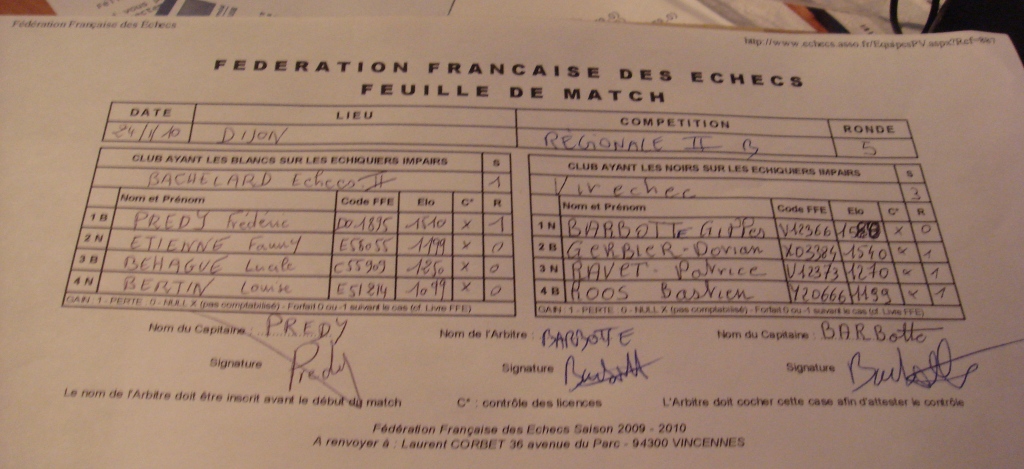 Fédération Française des Echecs
http://www.echecs.asso.fr/EquipesPV.aspx?Ref=887
FEDERATION FRANCAISE DES ECHECS
FEUILLE DE MATCH
DATE LIEU COMPETITION RONDE
24/1/10 DIJON RÉGIONALE II B 5
CLUB AYANT LES BLANCS SUR LES ECHIQUIERS IMPAIRS S CLUB AYANT LES NOIRS SUR LES ECHIQUIERS IMPAIRS S
BACHELARD Echecs II 1 Vir echec 3
Nom et Prénom Code FFE Elo C* R Nom et Prénom Code FFE Elo C* R
1 B PREDY Frédéric D01895 1510 x 1 1 N BARBOTTE Gilles V12366 x 0
2 N ETIENNE Fanny E58055 1199 x 0 2 B GERBIER-Dorian X03384 1540 x 1
3 B BEHAGUE Lucile E55909 1250 x 0 3 N RAVET-Patrice V12373 1270 x 1
4 N BERTIN Louise E51214 1099 x 0 4 B ROOS Bastien Y20666 1199 x 1
GAIN : 1 - PERTE : 0 - NULL X (pas comptabilisé) - Forfait 0 ou -1 suivant le cas (cf. Livre FFE) GAIN : 1 - PERTE : 0 - NULL X (pas comptabilisé) - Forfait 0 ou -1 suivant le cas (cf. Livre FFE)
Nom du Capitaine : PREDY Nom de l'Arbitre : BARBOTTE Nom du Capitaine : BARBotte
Signature Predy Signature Barbott Signature Barbotte
Le nom de l'Arbitre doit être inscrit avant le début du match C* : contrôle des licences L'Arbitre doit cocher cette case afin d'attester le contrôle
Fédération Française des Echecs Saison 2009 - 2010
A renvoyer à : Laurent CORBET 36 avenue du Parc - 94300 VINCENNES